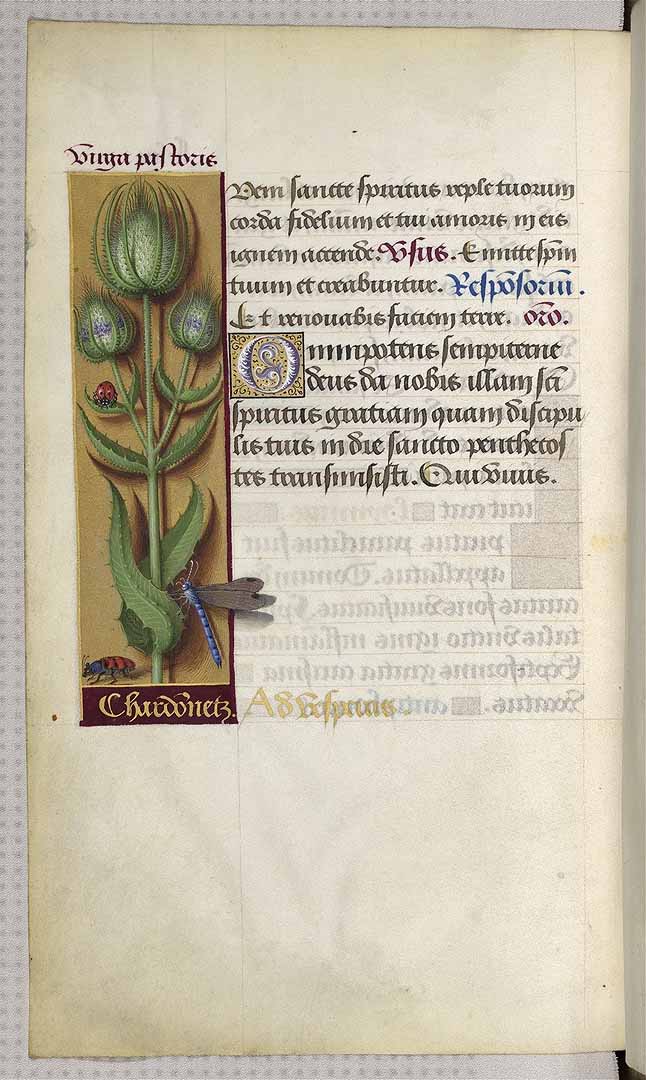 Virga pastoris
Veni sancte spiritus reple tuorum
corda fidelium et tui amoris in eis
ignem accende. Vsus. Emitte spm
tuum et creabuntur. Responsoriu.
Et renouabis faciem terre. oro.
Omnipotens sempiterne
deus da nobis illam sci
spiritus gratiam quam discipu
lis tuis in die sancto penthecos
tes transmisisti. Qui viuis.
Chardonnetz. Ad vesperas.